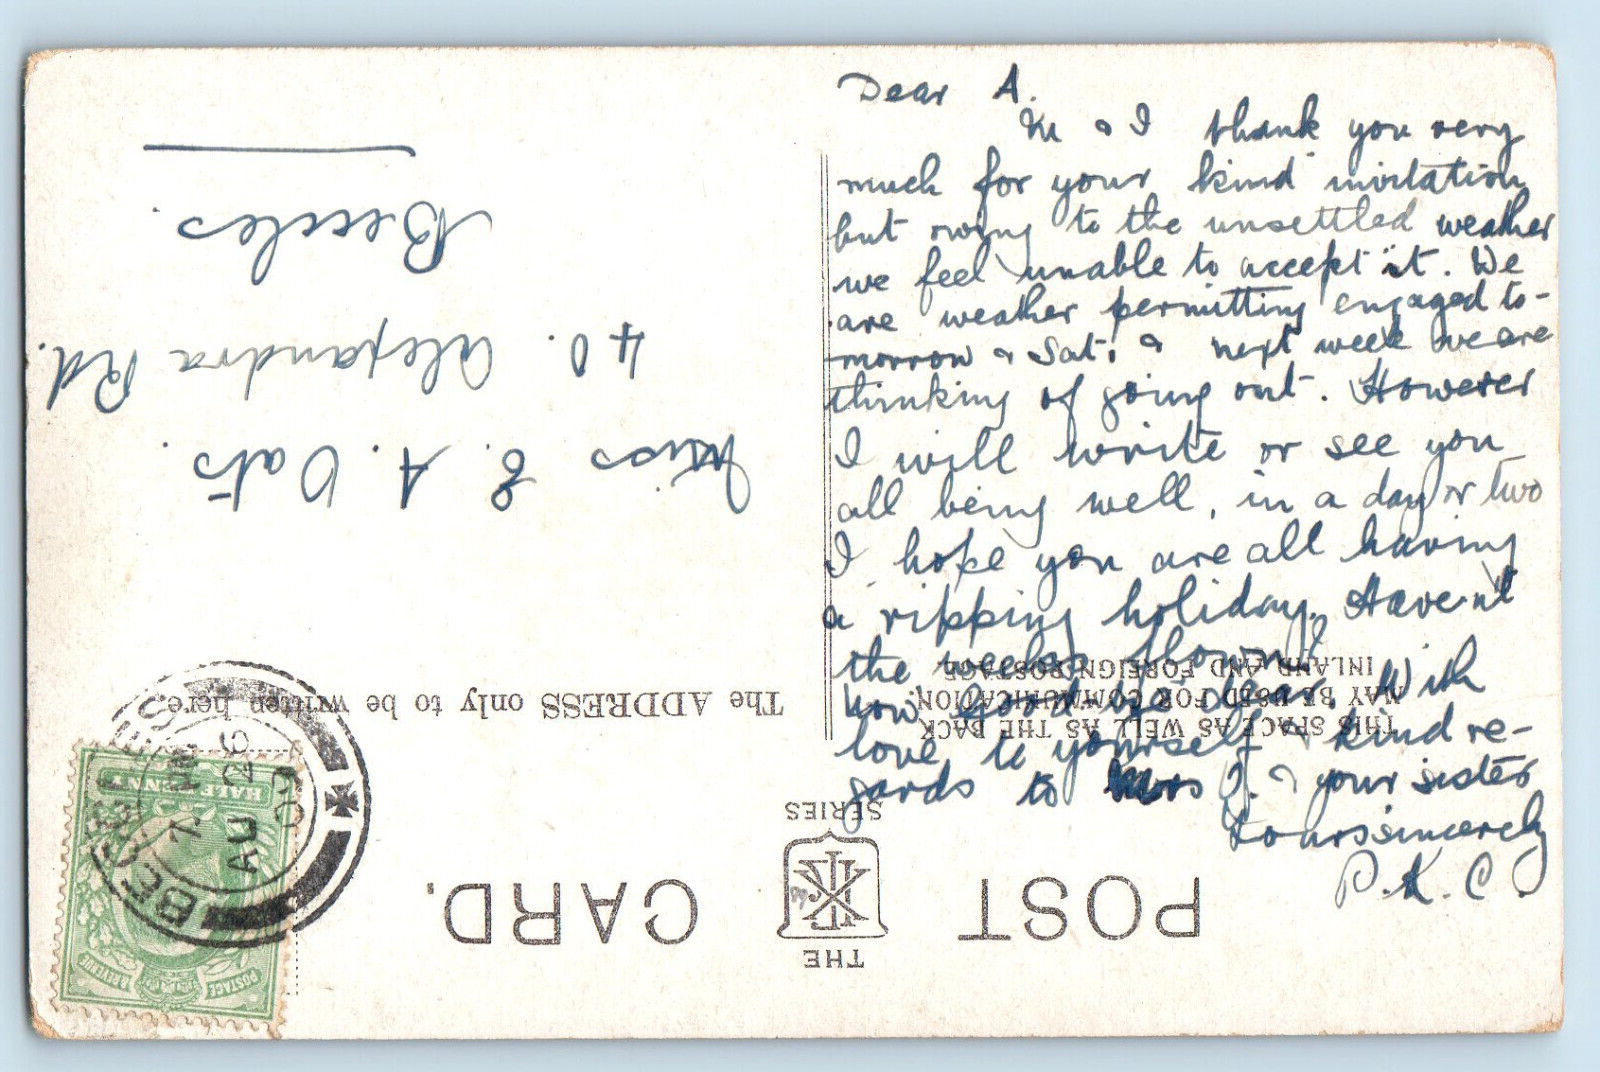 Dear A.
M & I thank you very
much for your kind invitation
but owing to the unsettled weather
we feel unable to accept it. We
are weather permitting engaged to-
morrow & Sat. & next week we are
thinking of going out. However
I will write or see you
all being well, in a day or two
I hope you are all having
a ripping holiday. Have-n't
the weeks flown?
now dear. With
love to yourself & kind re-
gards to Mrs O. & your sister
Yours sincerely
P. K. C.
POST CARD.
THE
SERIES
THIS SPACE AS WELL AS THE BACK
MAY BE USED FOR COMMUNICATION.
INLAND AND FOREIGN POSTAGE
The ADDRESS only to be written here.
Miss E. A.
40. Alexandra Rd.
Beccles.
BECCLES
AU 26
09
POSTAGE
& REVENUE
HALF PENNY